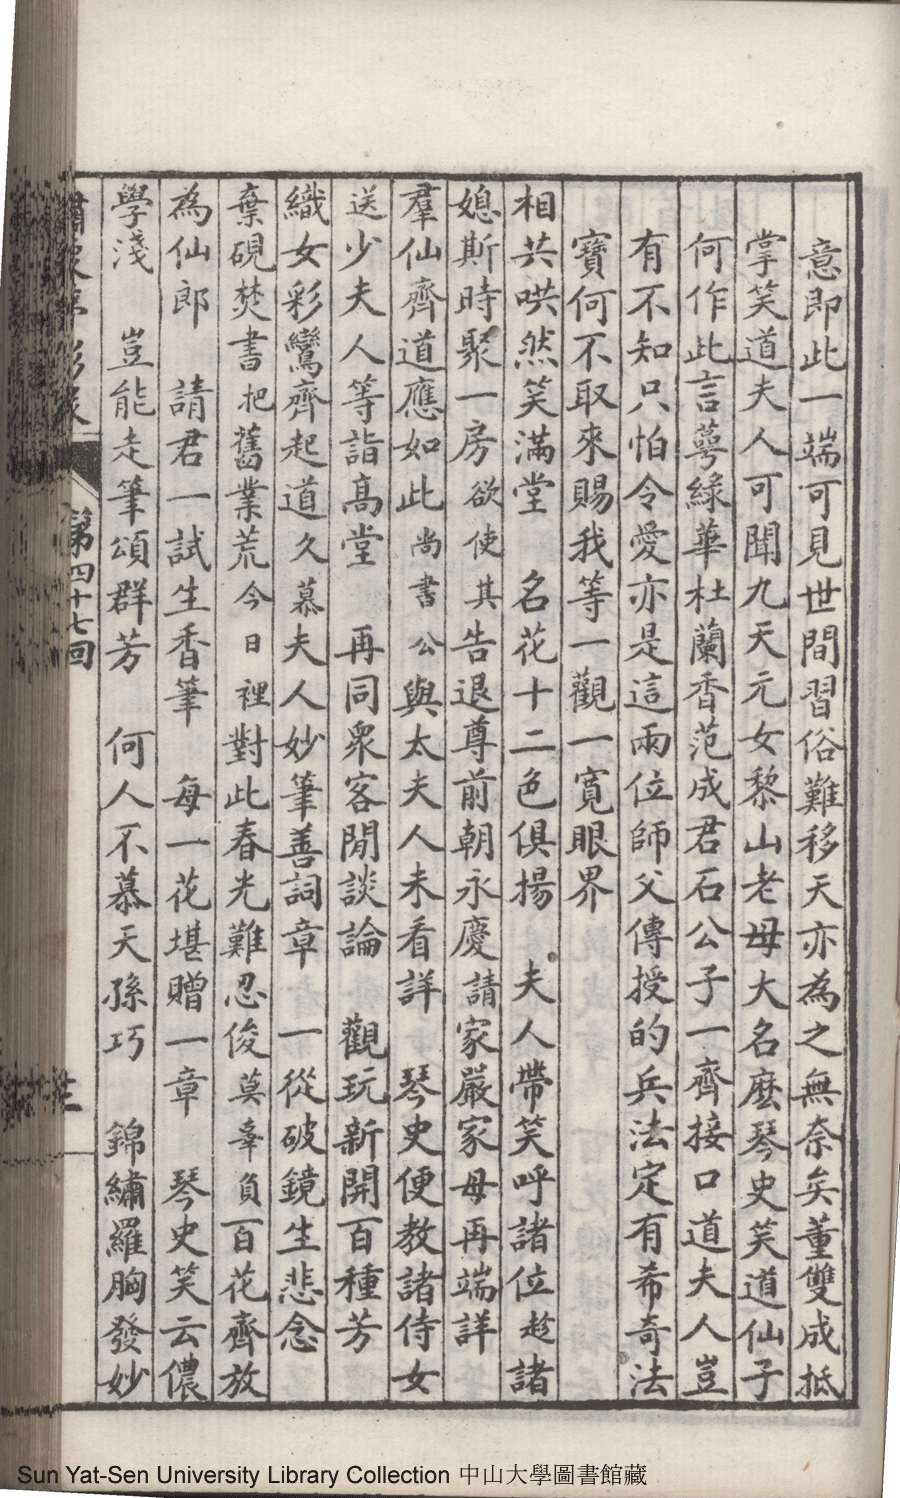 意即此一端可見世間習俗難移天亦為之無奈矣董雙成抵
掌笑道夫人可聞九天元女黎山老母大名麽琴史笑道仙子
何作此言萼綠華杜蘭香范成君石公子一齊接口道夫人豈
有不知只怕令愛亦是這兩位師父傳授的兵法定有希奇法
寶何不取來賜我等一觀一寬眼界
相共哄然笑滿堂 名花十二色俱揚 夫人帶笑呼諸位趁諸
媳斯時聚一房欲使其告退尊前朝永慶請家嚴家母再端詳
羣仙齊道應如此尚書公與太夫人未看詳 琴史便教諸侍女
送少夫人等詣高堂 再同衆客閒談論 觀玩新開百種芳
織女彩鸞齊起道久慕夫人妙筆善詞章 一從破鏡生悲念
棄硯焚書把舊業荒今日裡對此春光難忍俊莫辜負百花齊放
為仙郎 請君一試生香筆 每一花堪贈一章 琴史笑云儂
學淺 豈能走筆頌群芳 何人不慕天孫巧 錦繡羅胸發妙
第四十七回
Sun Yat-Sen University Library Collection 中山大學圖書館藏